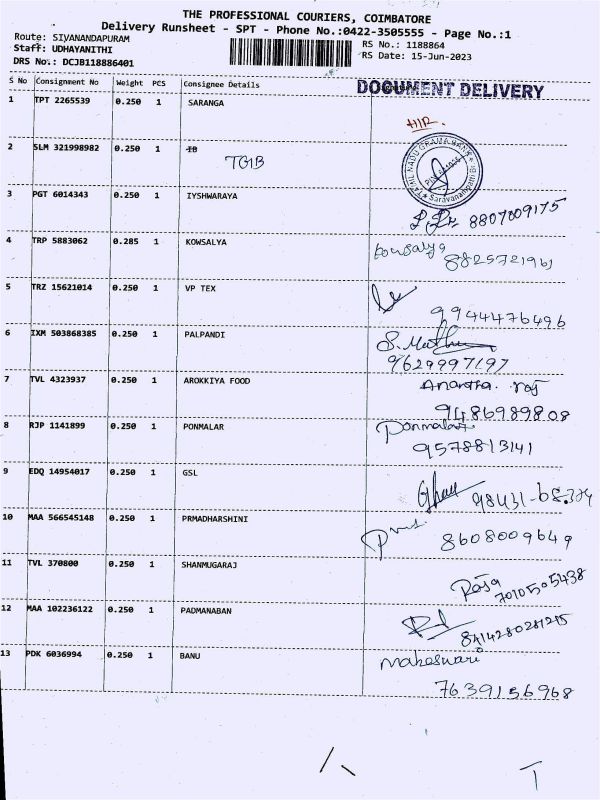 THE PROFESSIONAL COURIERS, COIMBATORE
Delivery Runsheet - SPT - Phone No.:0422-3505555 - Page No.:1
Route: SIVANANDAPURAM
Staff: UDHAYANITHI
DRS No.: DCJB118886401
RS No.: 1188864
RS Date: 15-Jun-2023
S No Consignment No Weight PCS Consignee Details
DOCUMENT DELIVERY
1 TPT 2265539 0.250 1 SARANGA
2 SLM 321998982 0.250 1 IB
TGIB
TAMIL NADU GRAMA BANK
3 PGT 6014343 0.250 1 IYSHWARAYA
8807009175
4 TRP 5883062 0.285 1 KOWSALYA
kowsalya
8825721961
5 TRZ 15621014 0.250 1 VP TEX
9944476496
6 IXM 503868385 0.250 1 PALPANDI
9629997197
7 TVL 4323937 0.250 1 AROKKIYA FOOD
Anantha raj
9486989808
8 RJP 1141899 0.250 1 PONMALAR
Ponmalar
9578813141
9 EDQ 14954017 0.250 1 GSL
10 MAA 566545148 0.250 1 PRMADHARSHINI
8608009649
11 TVL 370800 0.250 1 SHANMUGARAJ
Raja
7010505438
12 MAA 102236122 0.250 1 PADMANABAN
13 PDK 6036994 0.250 1 BANU
Maheswari
7639156968